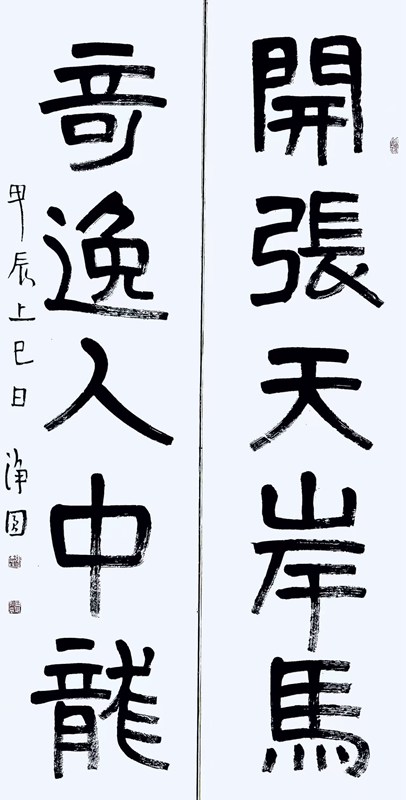 開張天岸馬
奇逸人中龍
甲辰上巳日 淨圓